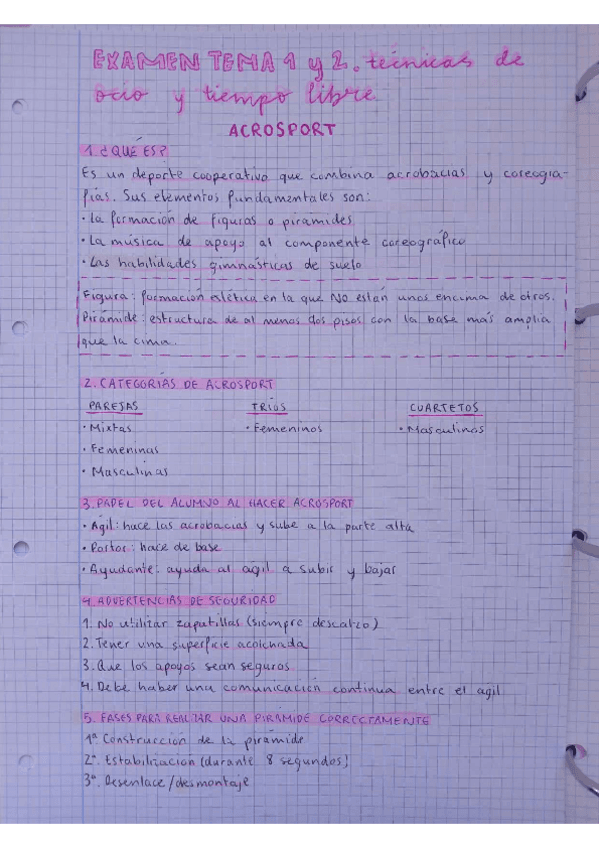 EXAMEN TEMA 1 y 2. técnicas de
ocio y tiempo libre
ACROSPORT
1. ¿QUÉ ES?
Es un deporte cooperativo que combina acrobacias y coreogra-
fías. Sus elementos fundamentales son:
· La formación de figuras o pirámides
· La música de apoyo al componente coreográfico
· Las habilidades gimnásticas de suelo
Figura: formación estética en la que NO están unos encima de otros.
Pirámide: estructura de al menos dos pisos con la base más amplia
que la cima.
2. CATEGORÍAS DE ACROSPORT
PAREJAS TRÍOS CUARTETOS
· Mixtas · Femeninos · Masculinos
· Femeninas
· Masculinas
3. PAPEL DEL ALUMNO AL HACER ACROSPORT
· Ágil: hace las acrobacias y sube a la parte alta
· Portor: hace de base
· Ayudante: ayuda al ágil a subir y bajar
4. ADVERTENCIAS DE SEGURIDAD
1. No utilizar zapatillas (siempre descalzo)
2. Tener una superficie acolchada
3. Que los apoyos sean seguros
4. Debe haber una comunicación continua entre el ágil
5. FASES PARA REALIZAR UNA PIRÁMIDE CORRECTAMENTE
1ª Construcción de la pirámide
2ª. Estabilización (durante 8 segundos)
3ª. Desenlace/desmontaje